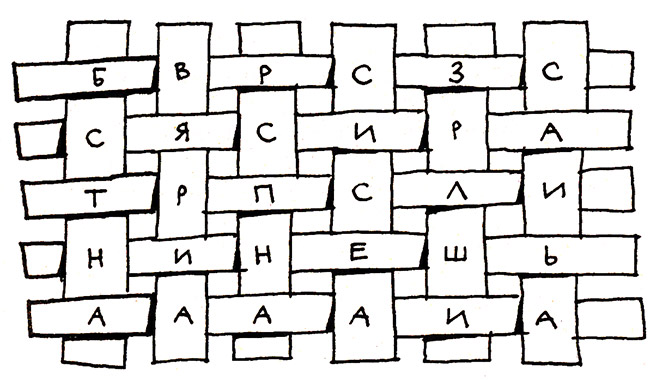 Б В Р С З С
С Я С И Р А
Т Р П С Л И
Н И Н Е Ш Ь
А А А А И А